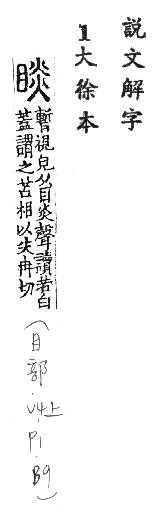 説文解字
1大徐本
睒
暫視皃从目炎聲讀若白
蓋謂之苫相似失冉切
(目部·v4上·P1·B9)